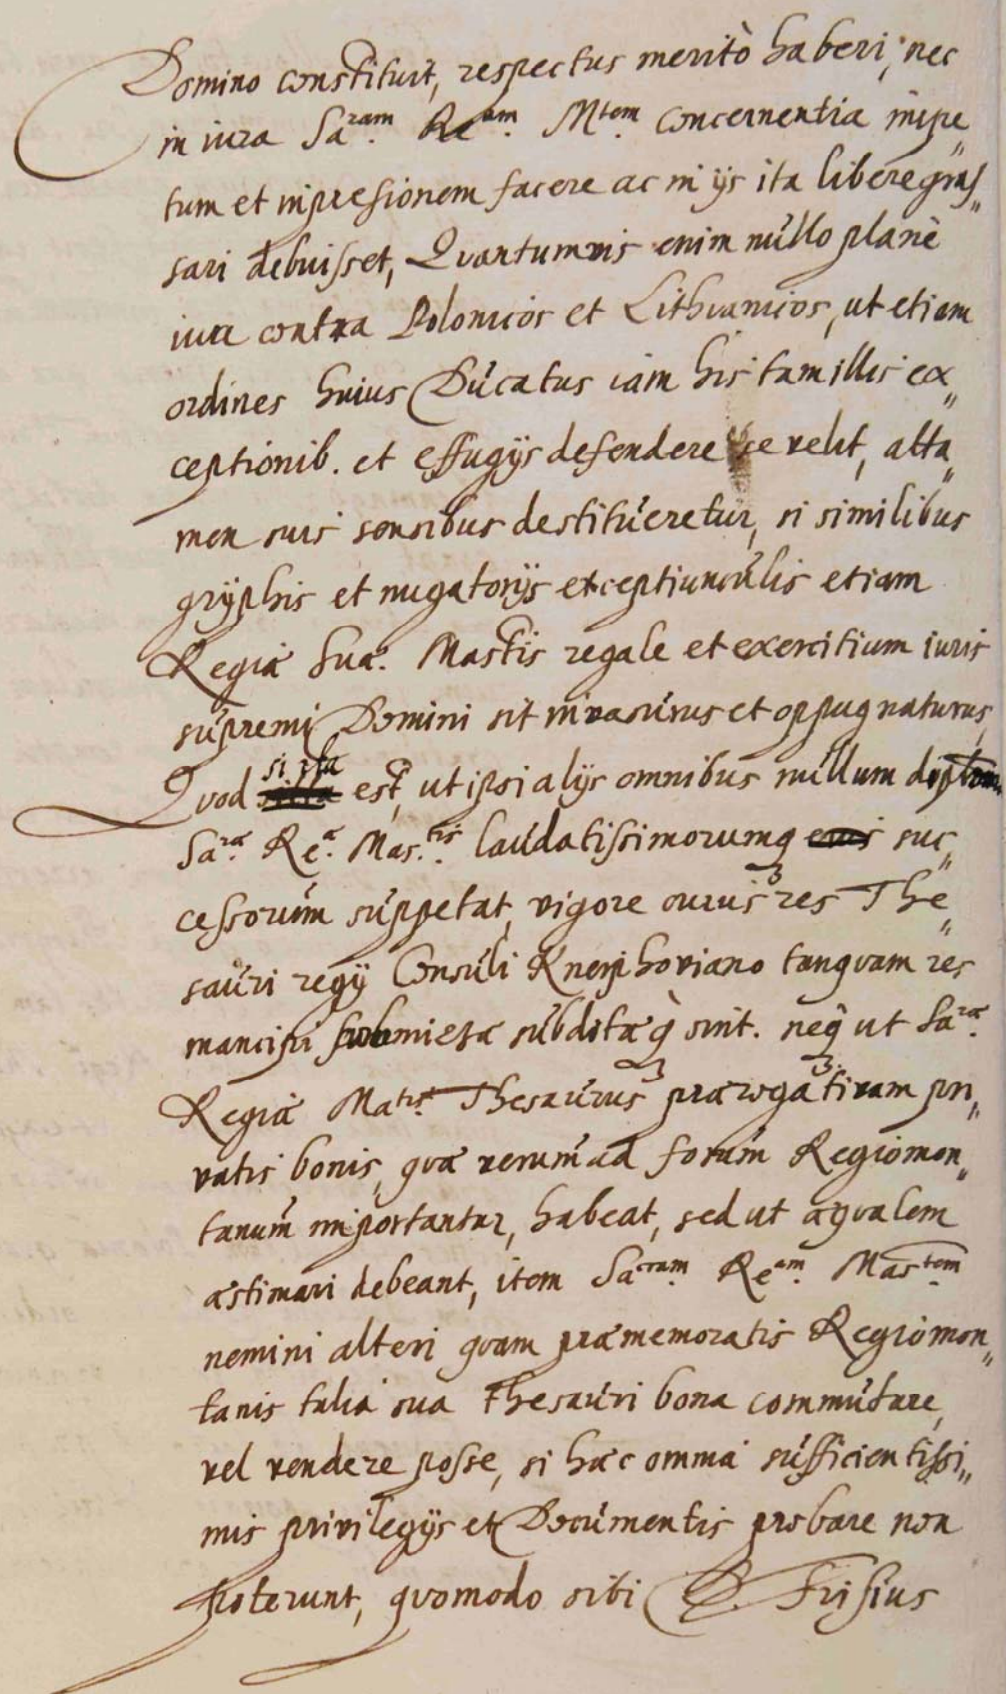 Domino constituit, respectus meritò haberi, nec
in iura Sa.ram Re.am Mtem concernentia impe„
tum et impresionem facere ac in ijs ita libere gras„
sari debuisset, Quantumvis enim núllo planè
iure contra Polonicos et Lithuanicos, ut etiam
ordines huius Dúcatus iam his tam illis ex„
ceptionib. et effugijs defendere se velit, atta„
men suis sensibus destitúeretur, si similibus
gryphis et nugatorijs exceptiuncúlis etiam
Regiæ Suæ. Mastis regale et exercitium iuris
súpremi Domini sit invasúrus et oppugnaturus,
Quod si ita est, ut ipsi alijs omnibus núllum diplom
Sa.ræ Re.æ Mas.tis laúdatissimorumq suc„
cessorúm súppetat, vigore cuius res The„
saúri regij Consúli Kneiphoviano tanquam res
mancipi submissa súbditæq̀ sint. neq̀ ut Sa.ræ
Regiæ Matis Thesaúrus prærogativam pri„
vatis bonis, quæ rerúm ad forúm Regiomon„
tanúm importantur, habeat, sed ut æqualem
æstimari debeant, item Sa.cram Re.am Mas.tem
nemini alteri quam præmemoratis Regiomon„
tanis talia sua thesaúri bona commútare,
vel vendere posse, si hæc omnia súfficientissi„
mis privilegijs et Documentis probare non
poterunt, quomodo sibi D. Frisius